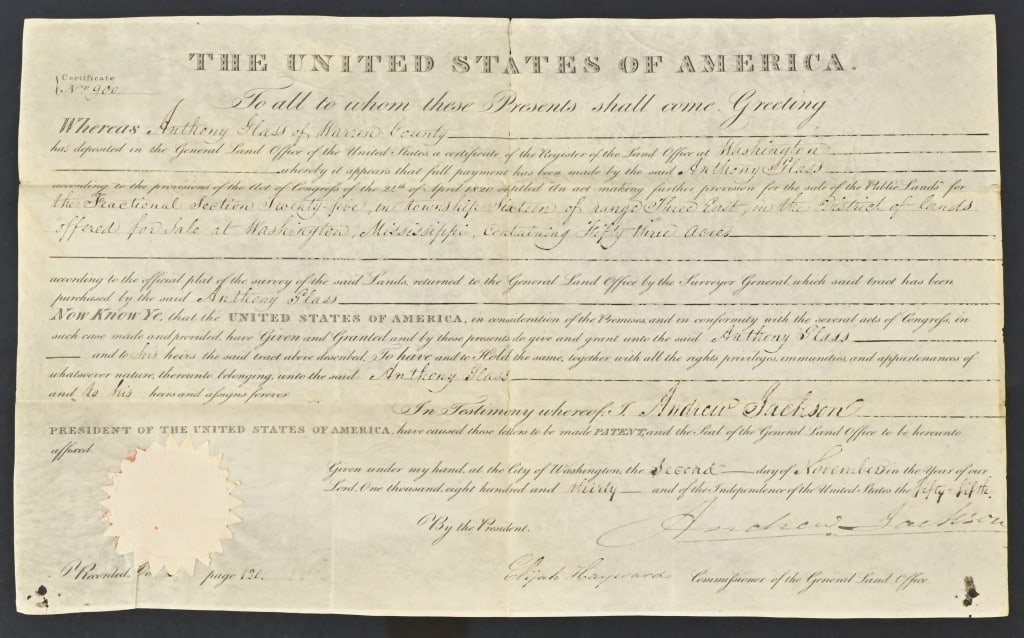 THE UNITED STATES OF AMERICA.
Certificate
No. 900
To all to whom these Presents shall come, Greeting
Whereas Anthony Glass of Warren County
has deposited in the General Land Office of the United States, a certificate of the Register of the Land Office at Washington
whereby it appears that full payment has been made by the said Anthony Glass
according to the provisions of the Act of Congress of the 24th of April 1820 entitled An act making further provision for the sale of the Public Lands for
the Fractional Section Twenty-five, in township Sixteen of range Three East, in the District of lands
offered for Sale at Washington, Mississippi, containing Fifty three Acres
according to the official plat of the survey of the said Lands, returned to the General Land Office by the Surveyor General, which said tract has been
purchased by the said Anthony Glass
Now Know Ye, that the UNITED STATES OF AMERICA, in consideration of the Premises, and in conformity with the several acts of Congress, in
such case made and provided, have Given and Granted and by these presents do give and grant unto the said Anthony Glass
and to his heirs the said tract above described, To have and to Hold the same, together with all the rights privileges, immunities, and appurtenances of
whatsoever nature, thereunto belonging, unto the said Anthony Glass
and to his heirs and assigns forever
In Testimony whereof, I, Andrew Jackson
PRESIDENT OF THE UNITED STATES OF AMERICA, have caused these letters to be made PATENT, and the Seal of the General Land Office to be hereunto
affixed.
Given under my hand, at the City of Washington, the Second day of November in the Year of our
Lord, One thousand, eight hundred and thirty and of the Independence of the United States the fifty-fifth.
Andrew Jackson
By the President.
Recorded, page 126.
Elijah Hayward Commissioner of the General Land Office